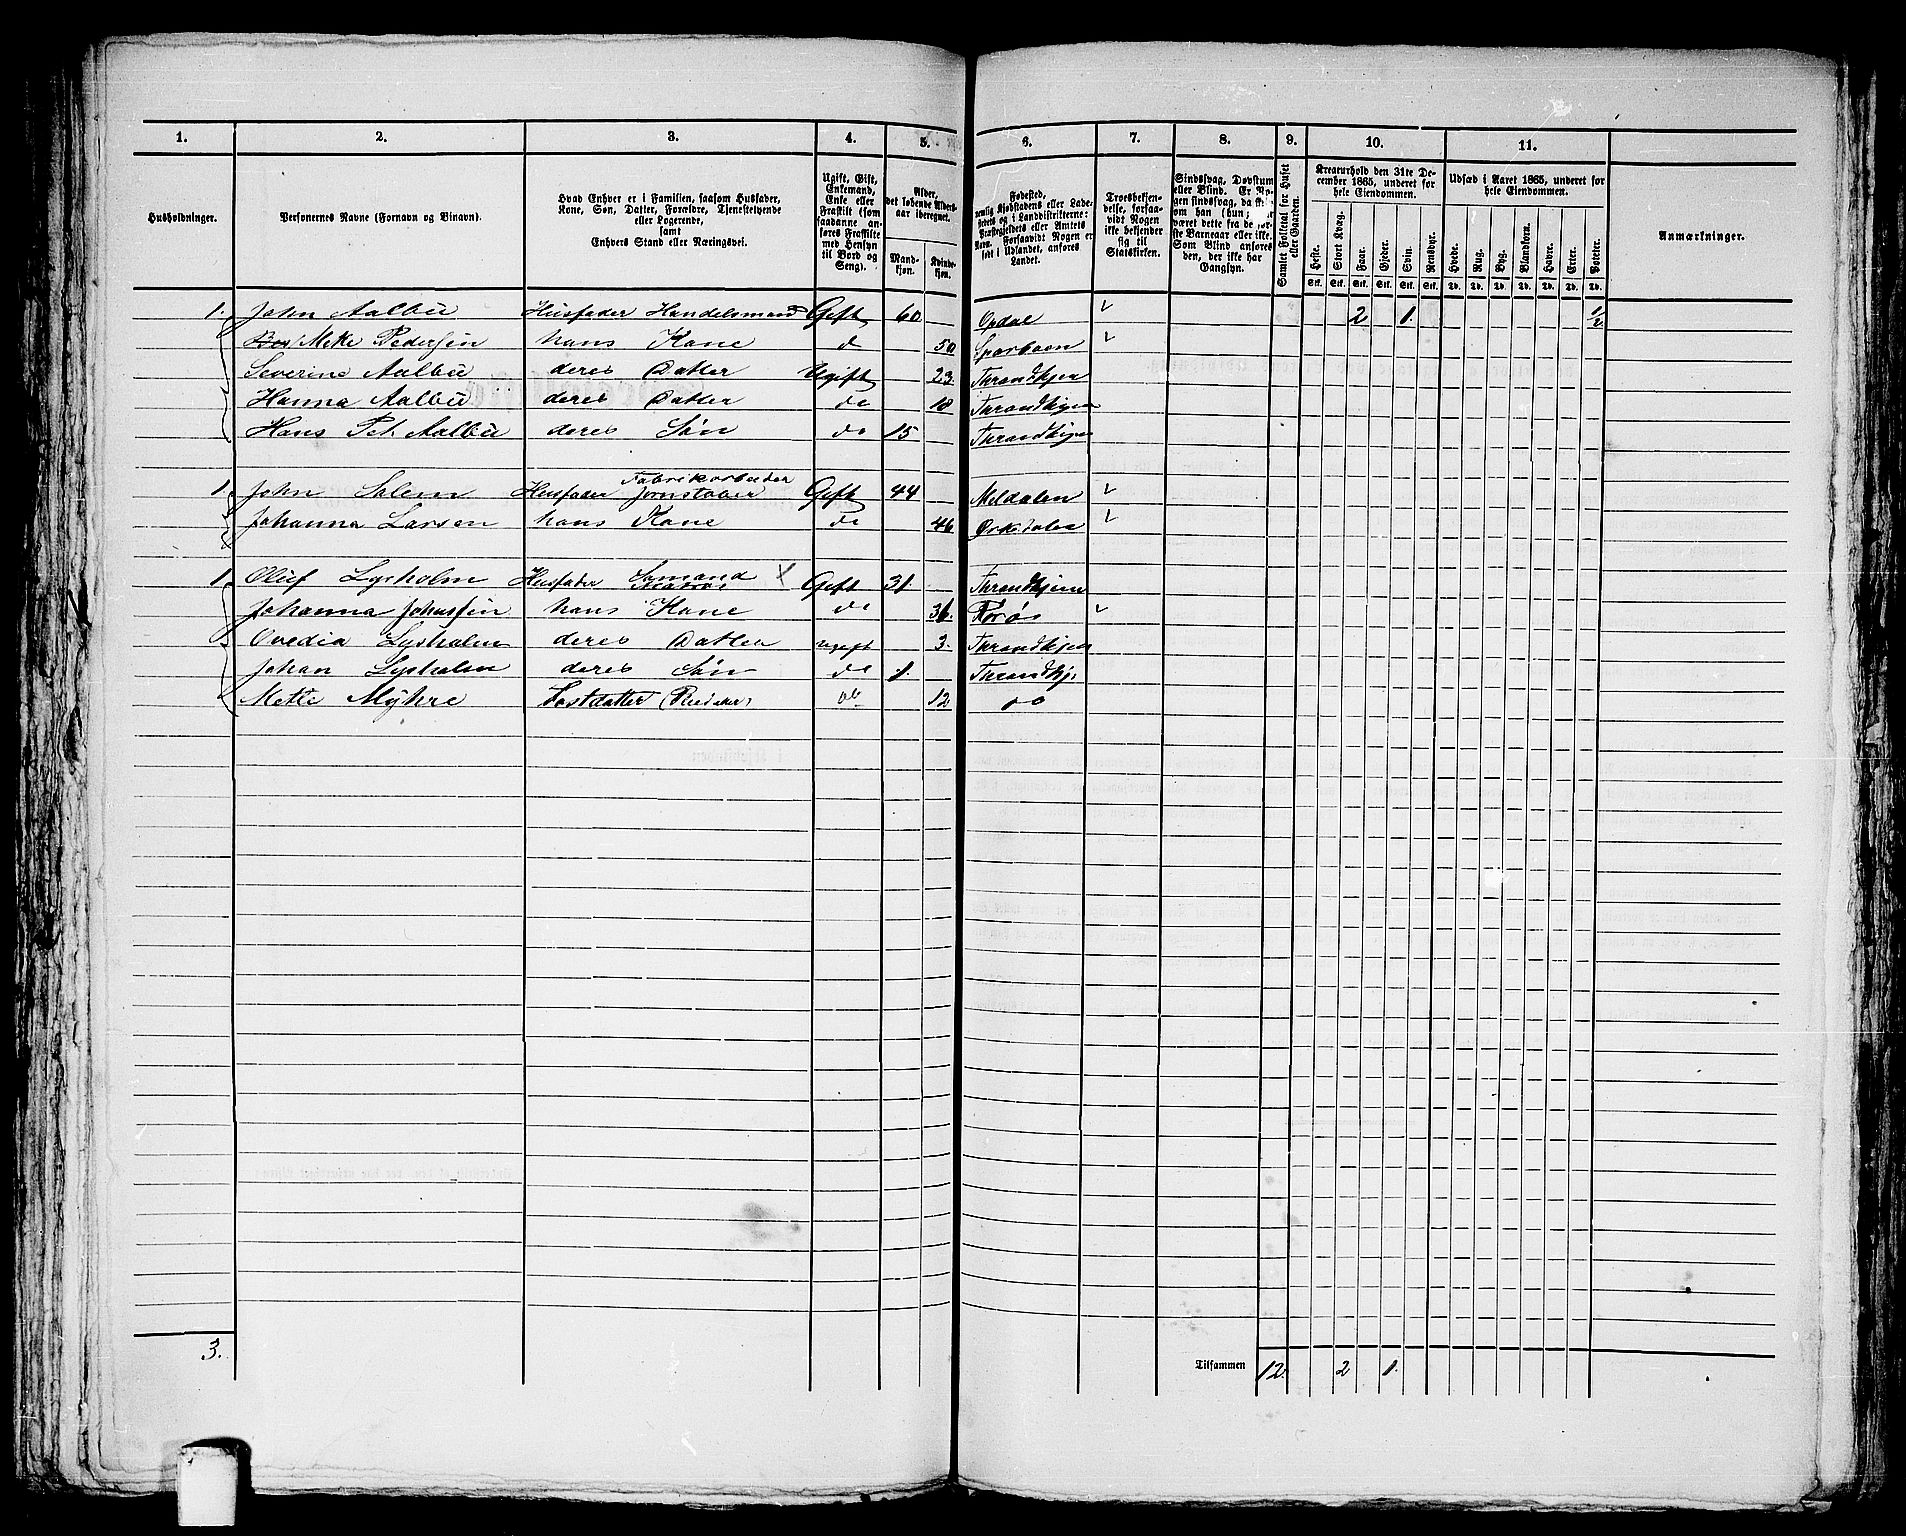 1. 2. 3. 4. 5. 6. 7. 8. 9. 10. 11.
Husholdninger.
Personernes Navne (Fornavn og Binavn).
Hvad Enhver er i Familien, saasom Husfader,
Kone, Søn, Datter, Forældre, Tjenestetyende
eller Logerende,
samt
Enhvers Stand eller Næringsvei.
Ugift, Gift,
Enkemand,
Enke eller
Fraskilt (som
saadanne an-
føres Fraskilte
med Hensyn
til Bord og
Seng).
Alder,
det løbende Alders-
aar iberegnet.
Mand-
kjøn.
Kvinde-
kjøn.
Fødested,
nemlig Kjøbstadens eller Lade-
stedets og i Landdistrikterne:
Præstegjeldets eller Amtets
Navn. Forsaavidt Nogen er
født i Udlandet, anføres
Landet.
Troesbekjen-
delse, forsaa-
vidt Nogen
ikke bekjender
sig til
Statskirken.
Sindssvag, Døvstum
eller Blind. Er No-
gen sindssvag, da
om han (hun) har
været dette fra de før-
ste Barneaar eller ikke.
Som Blind anføres
den, der ikke har
Gangsyn.
Samlet Folketal for Huset
eller Gaarden.
Kreaturhold den 31te De-
cember 1865, underet for
hele Eiendommen.
Heste. Stort Kvæg. Faar. Gjeder. Svin. Rensdyr.
Stk. Stk. Stk. Stk. Stk. Stk.
Udsæd i Aaret 1865, underet for
hele Eiendommen.
Hvede. Rug. Byg. Blandkorn. Havre. Erter. Poteter.
Td. Td. Td. Td. Td. Td. Td.
Anmærkninger.
1. John Aalbu Husfader Handelsmand Gift 60 Opdal 2 1. 1/2
Meke Pedersen hans Kone do 50 Sparboen
Severine Aalbu deres Datter Ugift 23. Throndhjem
Hanna Aalbu deres Datter do 18 Throndhjem
Hans Pet. Aalbu deres Søn do 15 Throndhjem
Fabrikarbeider
1. John Solem Husfader Jernstøber Gift 44 Meldalen
Johanna Larsen hans Kone do 46 Orkedalen
Sømand
1. Oluf Lysholm Husfader Matros Gift 31. Throndhjem
Johanna Johnsen hans Kone do 36. Rørøs
Ovedia Lysholm deres Datter ugift 3. Throndhjem
Johan Lysholm deres Søn do 1. Throndhj.
Mette Myhre Fostdatter do 12 do
3. Tilsammen 12. 2 1.